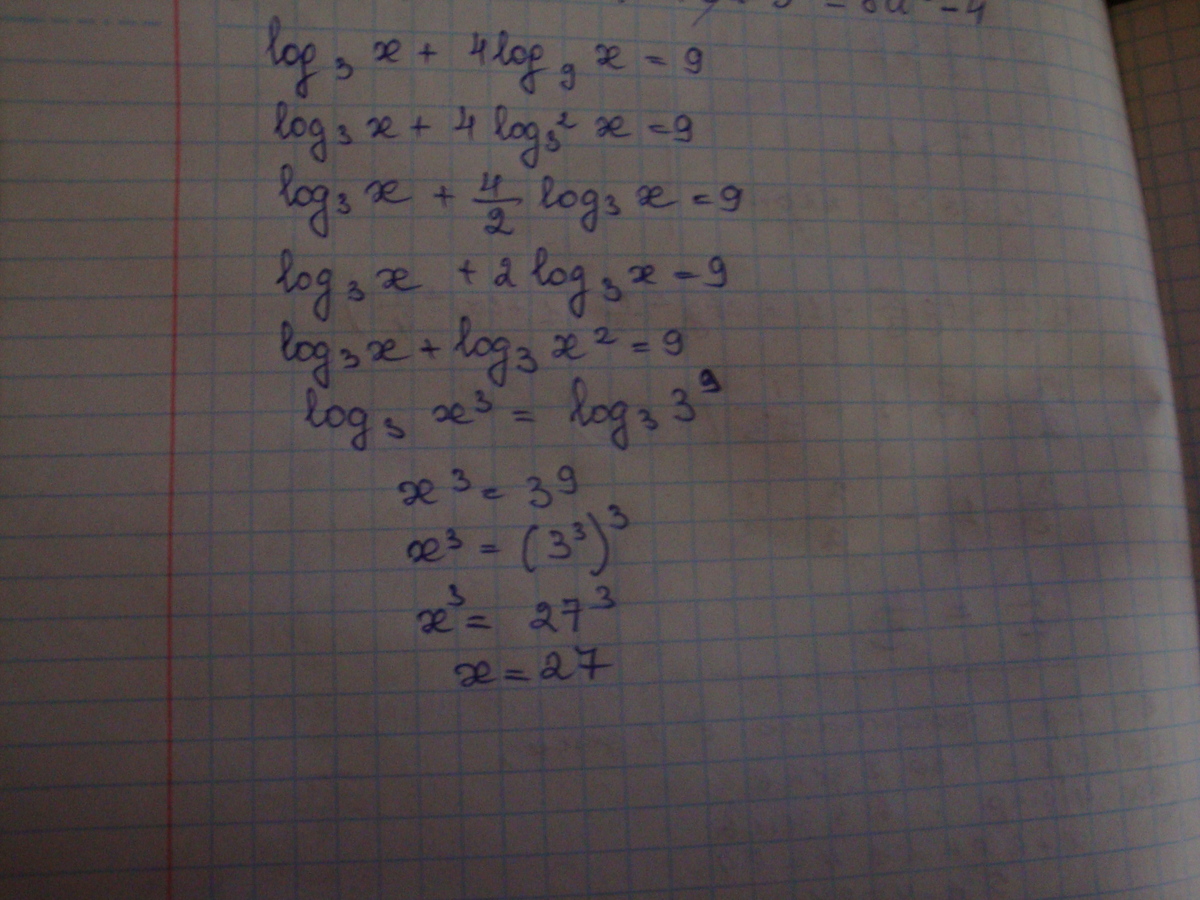 - 4
log₃ x + 4log₉ x = 9
log₃ x + 4 log₃² x = 9
log₃ x + 4/2 log₃ x = 9
log₃ x + 2 log₃ x = 9
log₃ x + log₃ x² = 9
log₃ x³ = log₃ 3⁹
x³ = 3⁹
x³ = (3³)³
x³ = 27³
x = 27